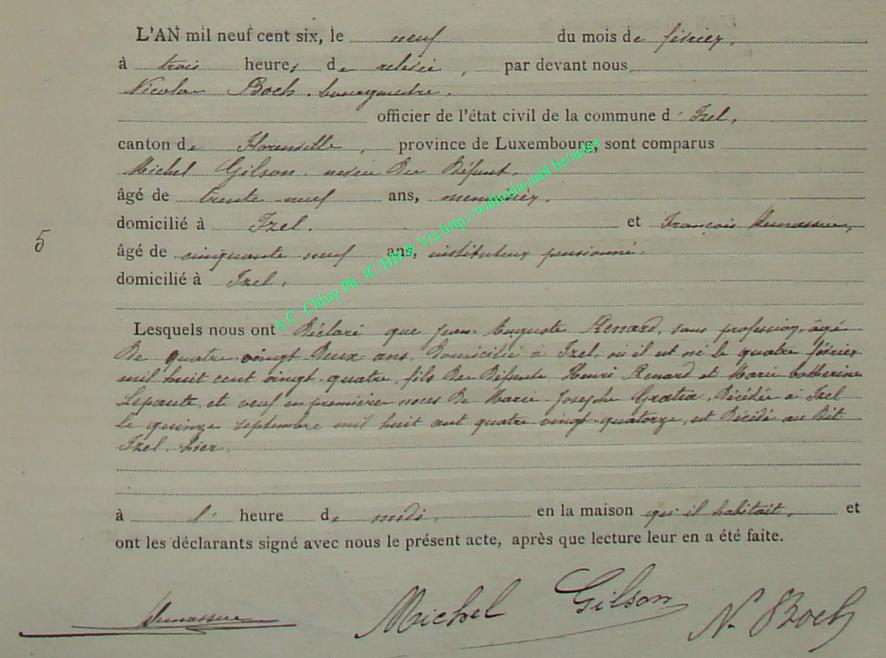 L'AN mil neuf cent six, le neuf du mois de février,
à trois heures de relevée, par devant nous
Nicolas Boch, bourgmestre,
officier de l'état civil de la commune d'Izel,
canton de Florenville, province de Luxembourg, sont comparus
Michel Gilson, neveu du défunt,
âgé de trente neuf ans, menuisier,
domicilié à Izel, et François
5
âgé de cinquante neuf ans, instituteur pensionné,
domicilié à Izel,
Lesquels nous ont déclaré que Jean Auguste Renard, sans profession, âgé
de quatre vingt deux ans, domicilié à Izel, où il est né le quatre février
mil huit cent vingt quatre, fils des défunts Henri Renard et Marie Catherine
et veuf en premières noces de Marie Josephe Gratia, décédée à Izel
le quinze septembre mil huit cent quatre vingt quatorze, est décédé au dit
Izel hier
à l' heure de midi, en la maison qu'il habitait, et
ont les déclarants signé avec nous le présent acte, après que lecture leur en a été faite.
Michel Gilson N. Boch
A.C. Chiny Ph. JC.HB@. Via http://wallonia-asbl.be/actes